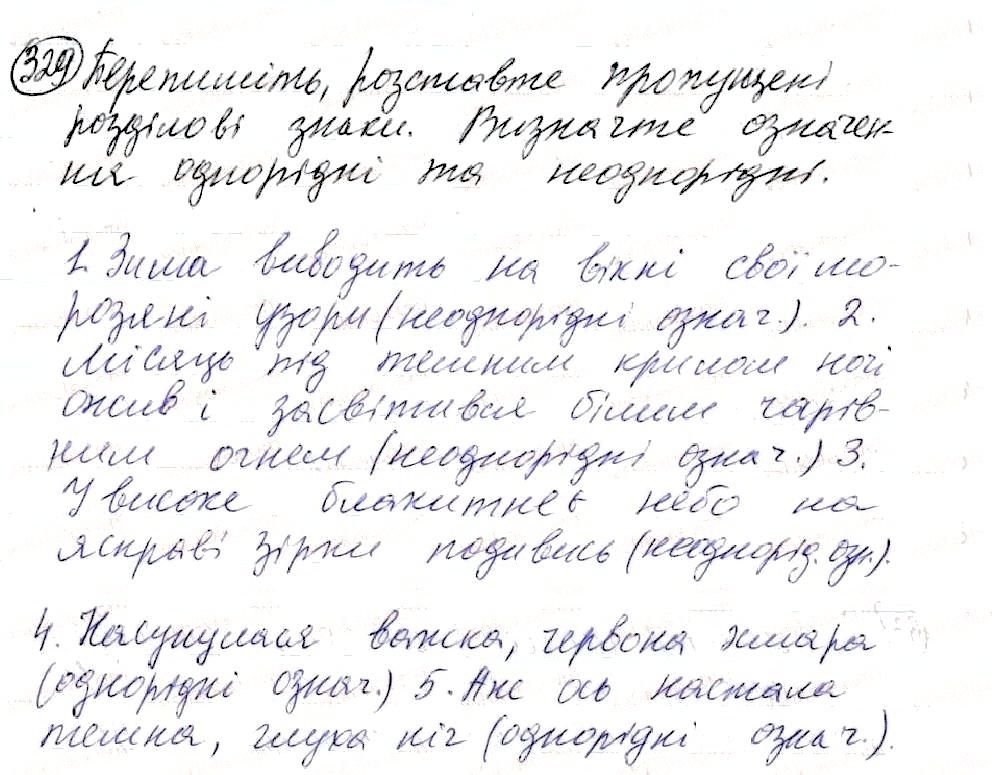 329 Перепишіть, розставте пропущені
розділові знаки. Визначте означен-
ня однорідні та неоднорідні.
1. Зима виводить на вікні свої мо-
розяні узори (неоднорідні означ.). 2.
Місяць під темним крилом ночі
ожив і засвітився білим чарів-
ним огнем (неоднорідні означ.) 3.
У високе блакитнеє небо на
яскраві зірки подивись (неоднорід. озн.).
4. Насунулася важка, червона хмара
(однорідні означ.) 5. Аж ось настала
темна, глуха ніч (однорідні означ.).